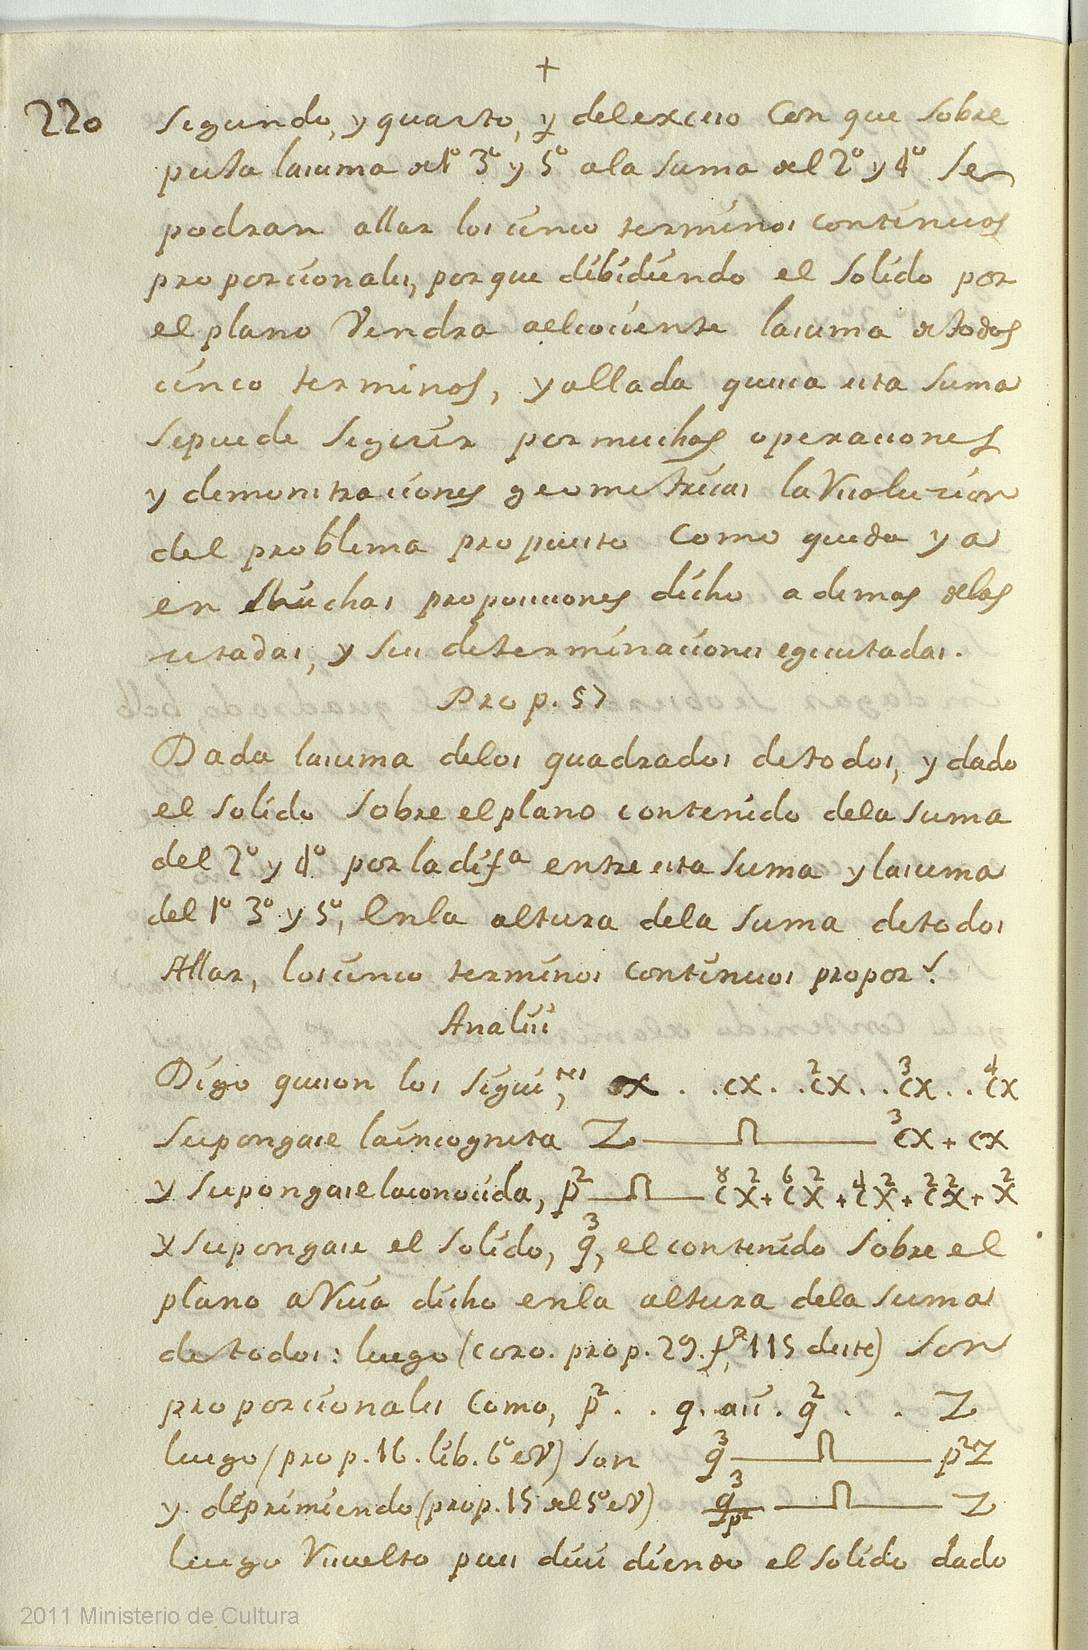 +
220 segundo, y quarto, y del exceso con que sobre
puja la suma del 1º 3º y 5º a la suma del 2º y 4º se
podran allar los cinco terminos continuos
proporcionales, porque dibidiendo el solido por
el plano Vendra a el cociente la suma de todos
cinco terminos, y allada que sea esta suma
se puede seguir por muchas operaciones
y demonstraciones geometricas la Resolucion
del problema propuesto como queda ya
en muchas proposiciones dicho ademas de las
citadas, y sus determinaciones egecutadas.
Prop. 57
Dada la suma de los quadrados de todos, y dado
el solido sobre el plano contenido de la suma
del 2º y 4º por la difª entre esta suma y la suma
del 1º 3º y 5º, en la altura de la suma de todos
Allar, los cinco terminos continuos propor.s
Analisis
Digo que son los sigui.tes, x . . cx . . c²x . . c³x . . c⁴x
Supongase la incognita Z —⊓— c³x + cx
y supongase la conocida, p² —⊓— c⁸x² + c⁶x² + c⁴x² + c²x² + x²
y supongase el solido, q³, el contenido sobre el
plano a Riva dicho en la altura de la suma
de todos: luego (coro. prop. 29. fº 115 deste) son
proporcionales como, p² . . q . asi . q² . . Z
luego (prop. 16. lib. 6º eV) son q³ —⊓— p²Z
y deprimiendo (prop. 15 del 5º eV) q³/p² —⊓— Z
luego Resuelto pues dividiendo el solido dado
2011 Ministerio de Cultura